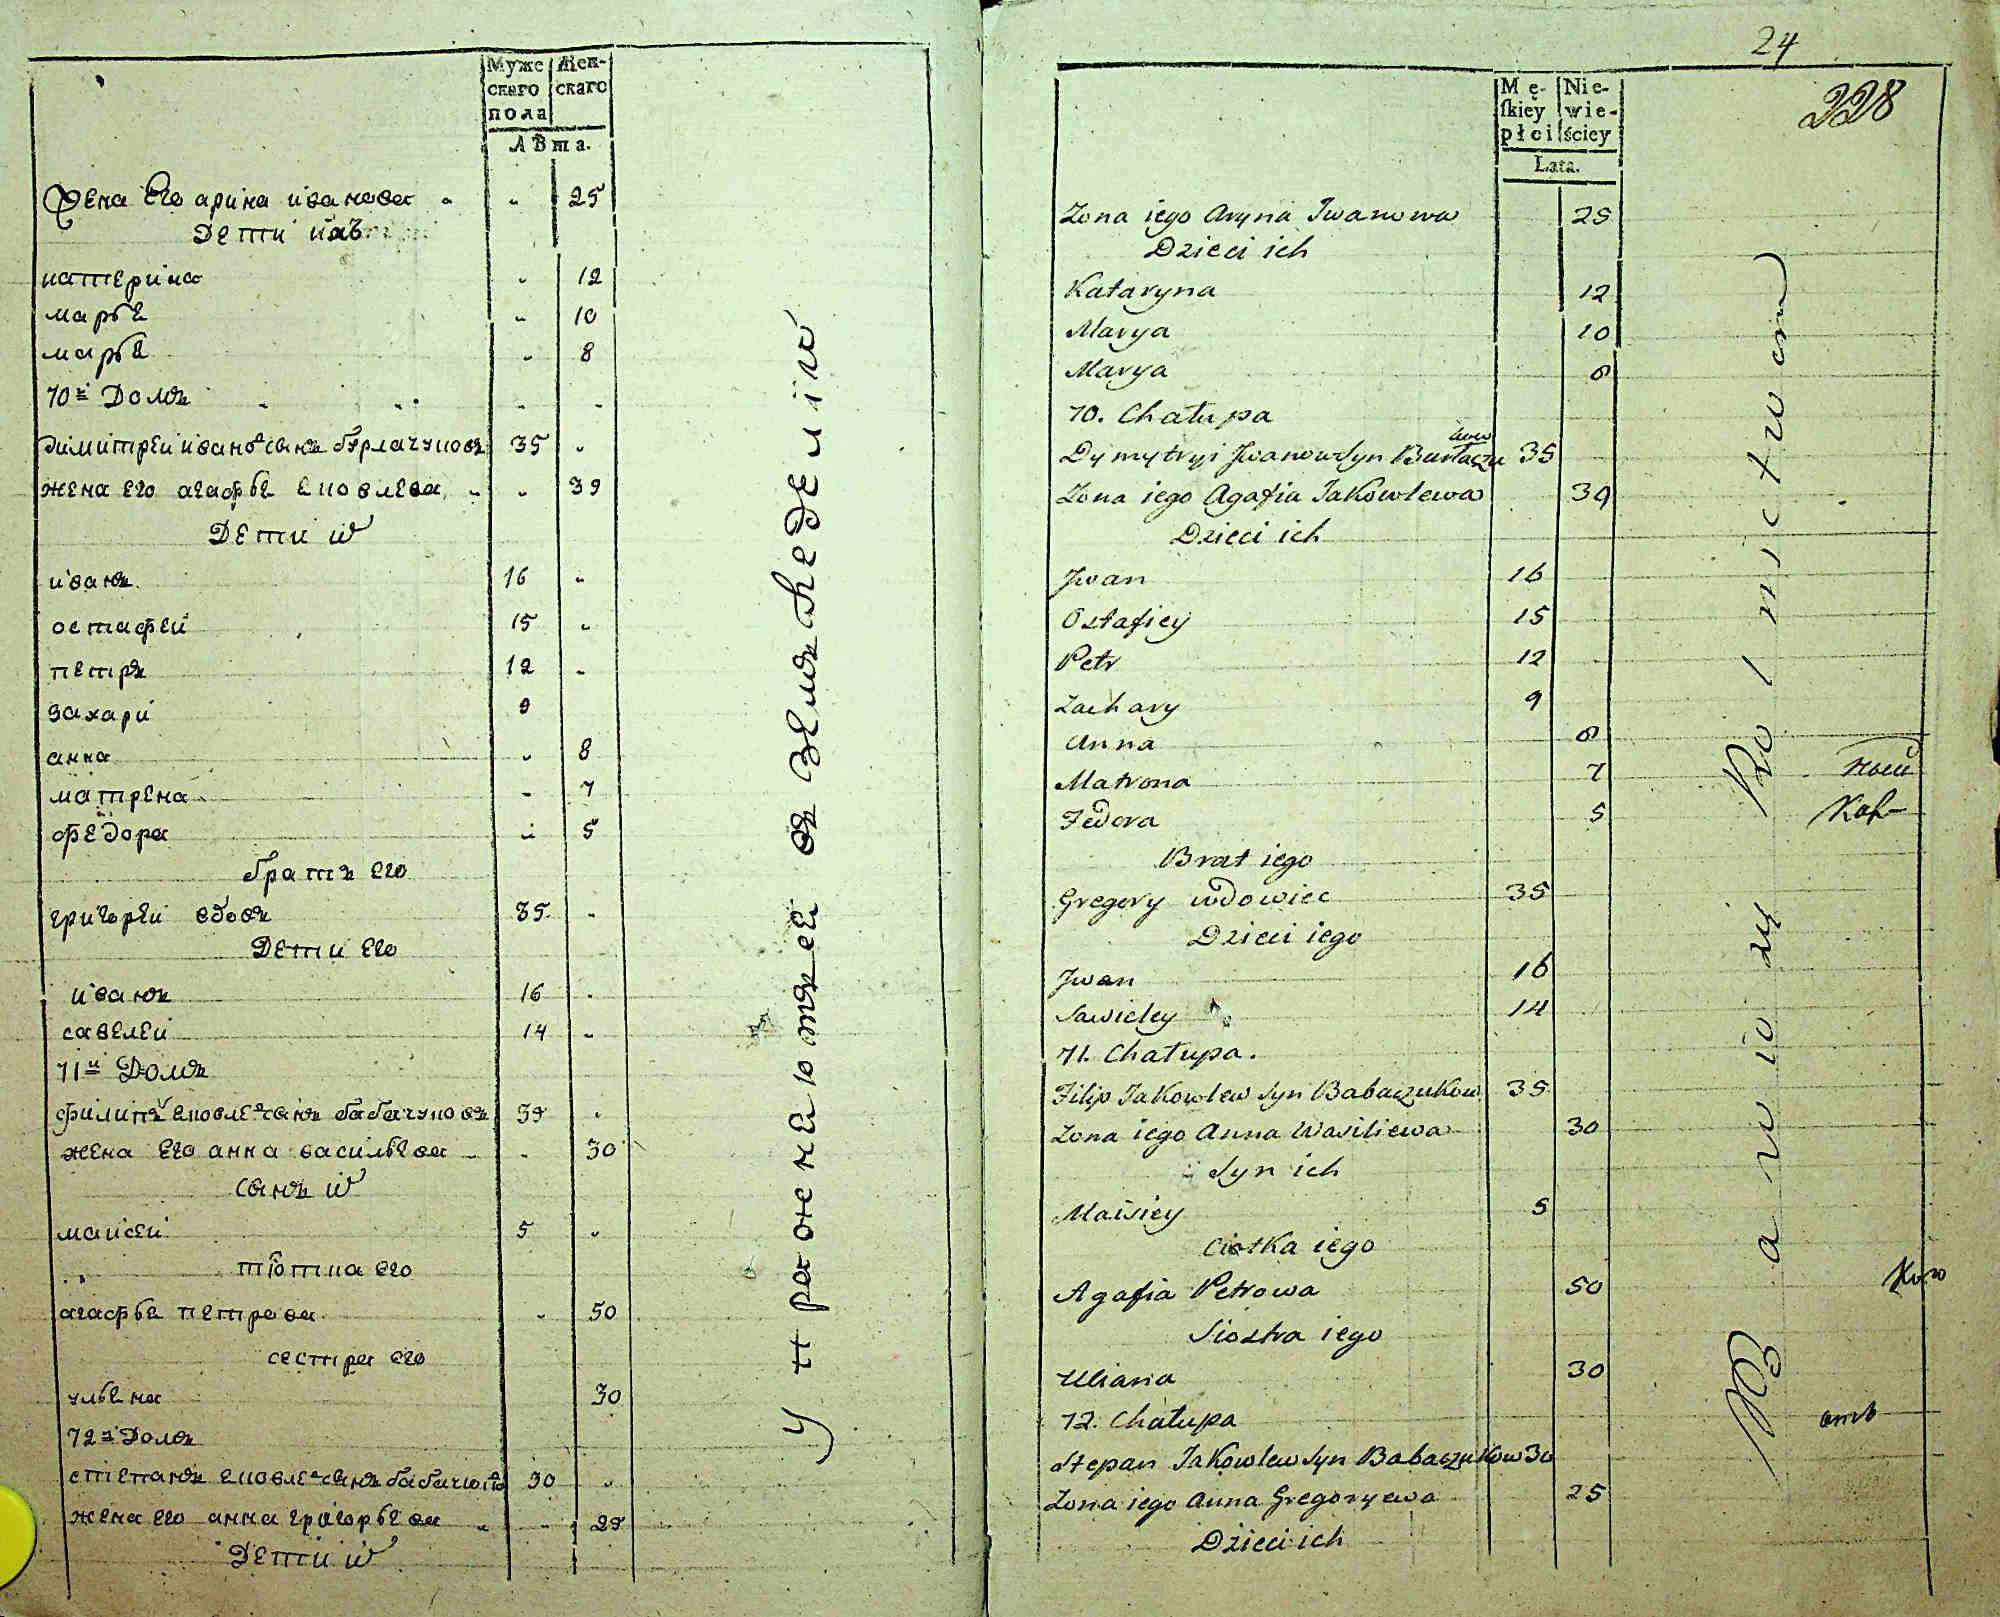 Муже
скаго
пола
Жен-
скаго
Лѣта.
Жена Его арина иванова 25
Дети ихъ
катерина 12
марья 10
марья 8
70й Домъ
димитреи ивановъ сынъ бурлачуковъ 35
жена его агафья яковлева 39
Дети их
иванъ 16
остафеи 15
петръ 12
захари 9
анна 8
матрена 7
федора 5
братъ его
григореи вдовъ 35
Дети его
иванъ 16
савелеи 14
71й Домъ
филипъ яковлевъ сынъ бабачуковъ 35
жена его анна васильева 30
сынъ их
маисеи 5
тіотка его
агафья петрова 50
сестра его
ульяна 30
72й Домъ
степанъ яковлевъ сынъ бабачуковъ 30
жена его анна григорьева 25
Дети их
Упражняютъсеи въ земъленеделіи
24
228
Mę-
ſkiey
płci
Nie-
wie-
ściey
Lata.
Zona iego Aryna Iwanowa 25
Dzieci ich
Kataryna 12
Marya 10
Marya 8
70. Chałupa
Dymytryi Iwanow Syn Burłaczukow 35
Zona iego Agafia Jakowlewa 39
Dzieci ich
Iwan 16
Ostafiey 15
Petr 12
Zachary 9
Anna 8
Matrona 7
Fedora 5
Brat iego
Gregory wdowiec 35
Dzieci iego
Iwan 16
Sawieley 14
71. Chałupa.
Filip Jakowlew Syn Babaczukow 35
Zona iego Anna Wasiliewa 30
Syn ich
Maisiey 5
Ciotka iego
Agafia Petrowa 50
Siostra iego
Uliana 30
72. Chałupa
Stepan Jakowlew Syn Babaczukow 30
Zona iego Anna Gregoryewa 25
Dzieci ich
Bawią się Rolnictwem
ный